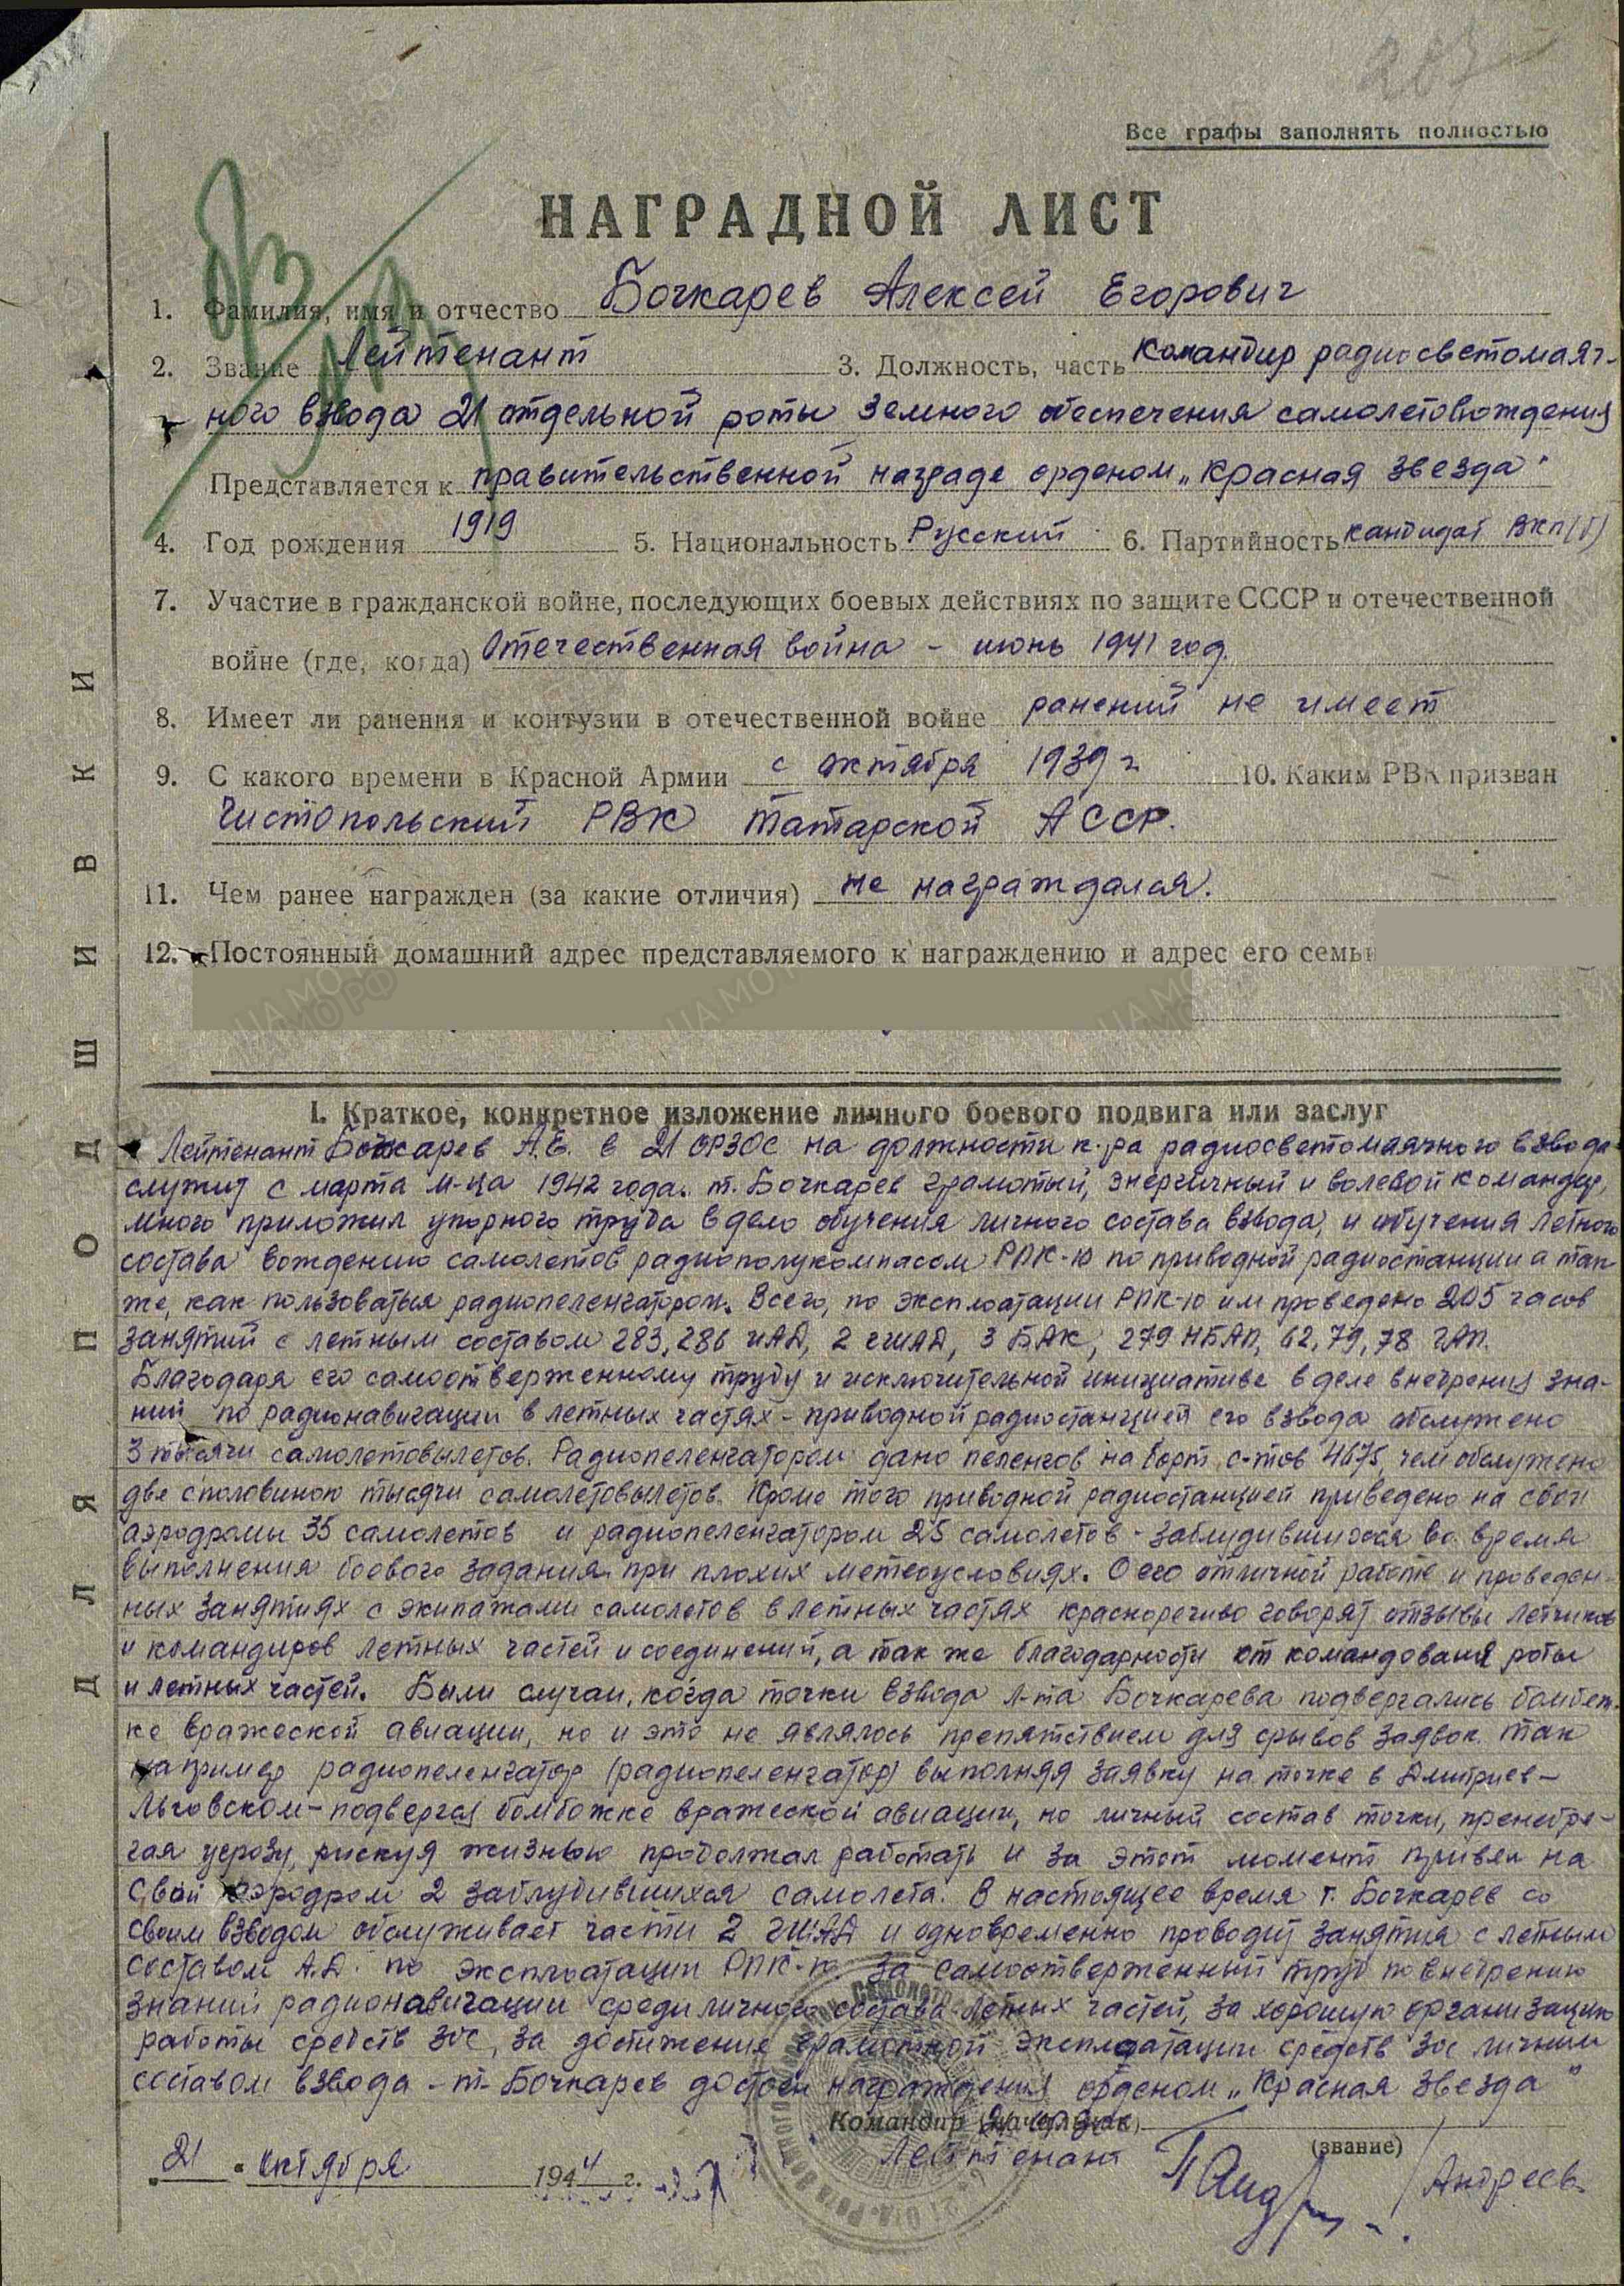 Все графы заполнять полностью
НАГРАДНОЙ ЛИСТ
1. Фамилия, имя и отчество Бочкарев Алексей Егорович
2. Звание Лейтенант 3. Должность, часть командир радиосветомаяч-
ного взвода 21 отдельной роты земного обеспечения самолетовождения
Представляется к правительственной награде орденом „Красная звезда"
4. Год рождения 1919 5. Национальность Русский 6. Партийность кандидат ВКП(б)
7. Участие в гражданской войне, последующих боевых действиях по защите СССР и отечественной
войне (где, когда) Отечественная война - июнь 1941 год.
8. Имеет ли ранения и контузии в отечественной войне ранений не имеет
9. С какого времени в Красной Армии с октября 1939 г 10. Каким РВК призван
Чистопольский РВК Татарской АССР.
11. Чем ранее награжден (за какие отличия) не награждался.
12. Постоянный домашний адрес представляемого к награждению и адрес его семьи
ДЛЯ ПОДШИВКИ
I. Краткое, конкретное изложение личного боевого подвига или заслуг
Лейтенант Бочкарев А.Е. в 21 ОРЗОС на должности к-ра радиосветомаячного взвода
служит с марта м-ца 1942 года. т. Бочкарев грамотый, энергичный и волевой командир,
много приложил упорного труда в дело обучения личного состава взвода, и обучения летного
состава вождению самолетов радиополукомпасом РПК-10 по приводной радиостанции а так
же, как пользоваться радиопеленгатором. Всего, по эксплоатации РПК-10 им проведено 205 часов
занятий с летным составом 283, 286 ИАД, 2 гШАД, 3 БАК, 279 НБАП, 62, 79, 78 ГАП.
Благодаря его самоотверженному труду и исключительной инициативе в деле внедрения зна-
ний по радионавигации в летных частях - приводной радиостанцией его взвода обслужено
3 тысячи самолетовылетов. Радиопеленгатором дано пеленгов на борт с-тов 4675, чем обслужено
две с половиною тысячи самолетовылетов. Кроме того приводной радиостанцией приведено на свои
аэродромы 35 самолетов и радиопеленгатором 25 самолетов - заблудившихся во время
выполнения боевого задания при плохих метеоусловиях. О его отличной работе и проведен-
ных занятиях с экипажами самолетов в летных частях красноречиво говорят отзывы летчиков
и командиров летных частей и соединений, а так же благодарности от командования роты
и летных частей. Были случаи, когда точки взвода л-та Бочкарева подвергались бомбеж-
ке вражеской авиации, но и это не являлось препятствием для срывов заявок. Так
например радиопеленгатор (радиопеленгатор) выполняя заявку на точке в Дмитриев-
Льговском - подвергся бомбожке вражеской авиации, но личный состав точки, пренебре-
гая угрозу, рискуя жизнью продолжал работать и за этот момент привел на
свой аэродром 2 заблудившихся самолета. В настоящее время т. Бочкарев со
своим взводом обслуживает части 2 гШАД и одновременно проводит занятия с летным
составом А.Д. по эксплоатации РПК-10. За самоотверженный труд по внедрению
знаний радионавигации среди личного состава летных частей, за хорошую организацию
работы средств ЗОС, за достижение грамотной эксплоатации средств ЗОС личным
составом взвода - т. Бочкарев достоен награждения орденом „Красная звезда"
Командир (начальник)
(звание)
Лейтенант /Андреев
21 Октября 1944 г.